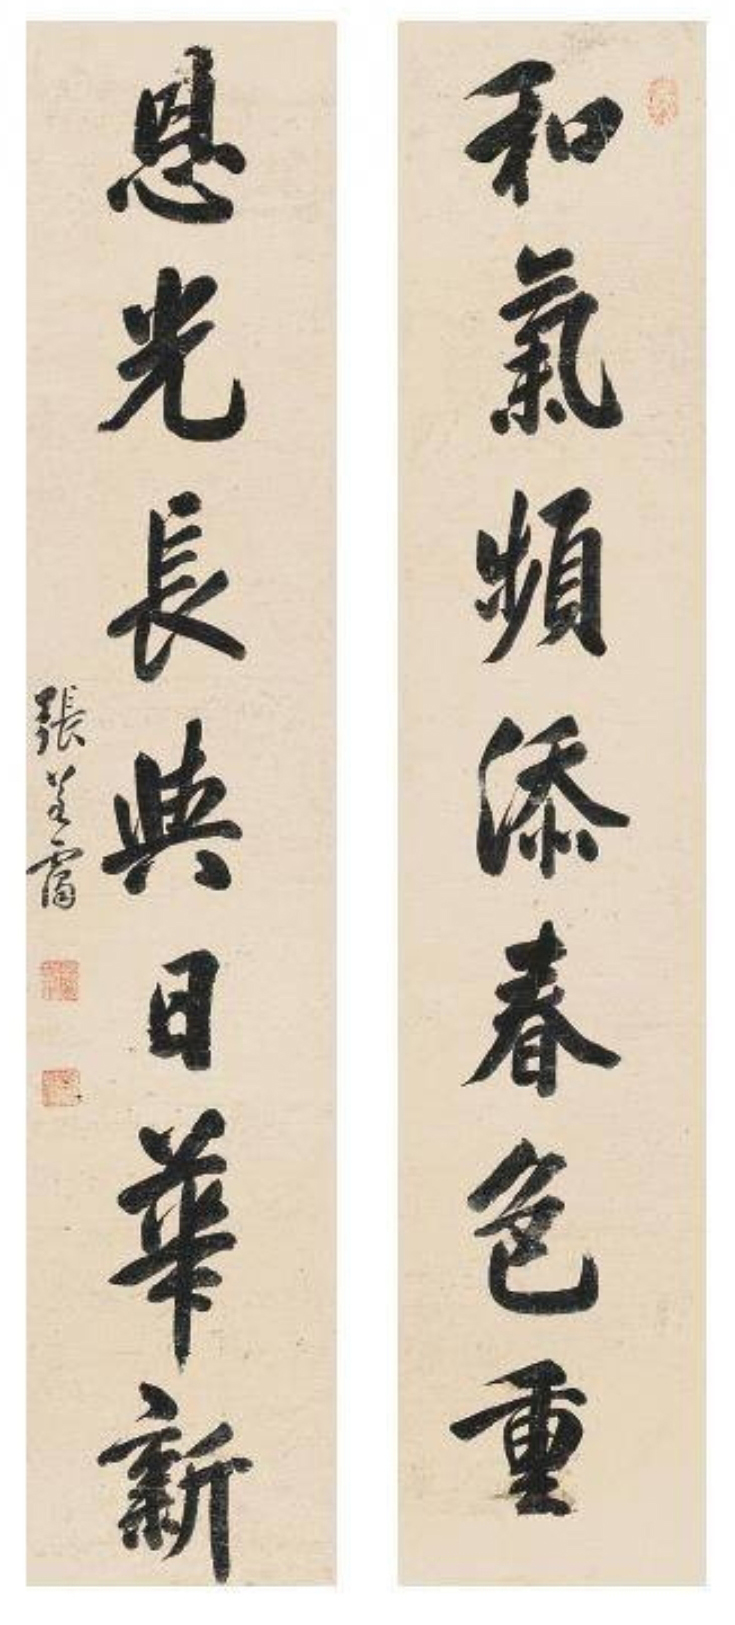 和氣頻添春色重
恩光長與日華新
張若靄